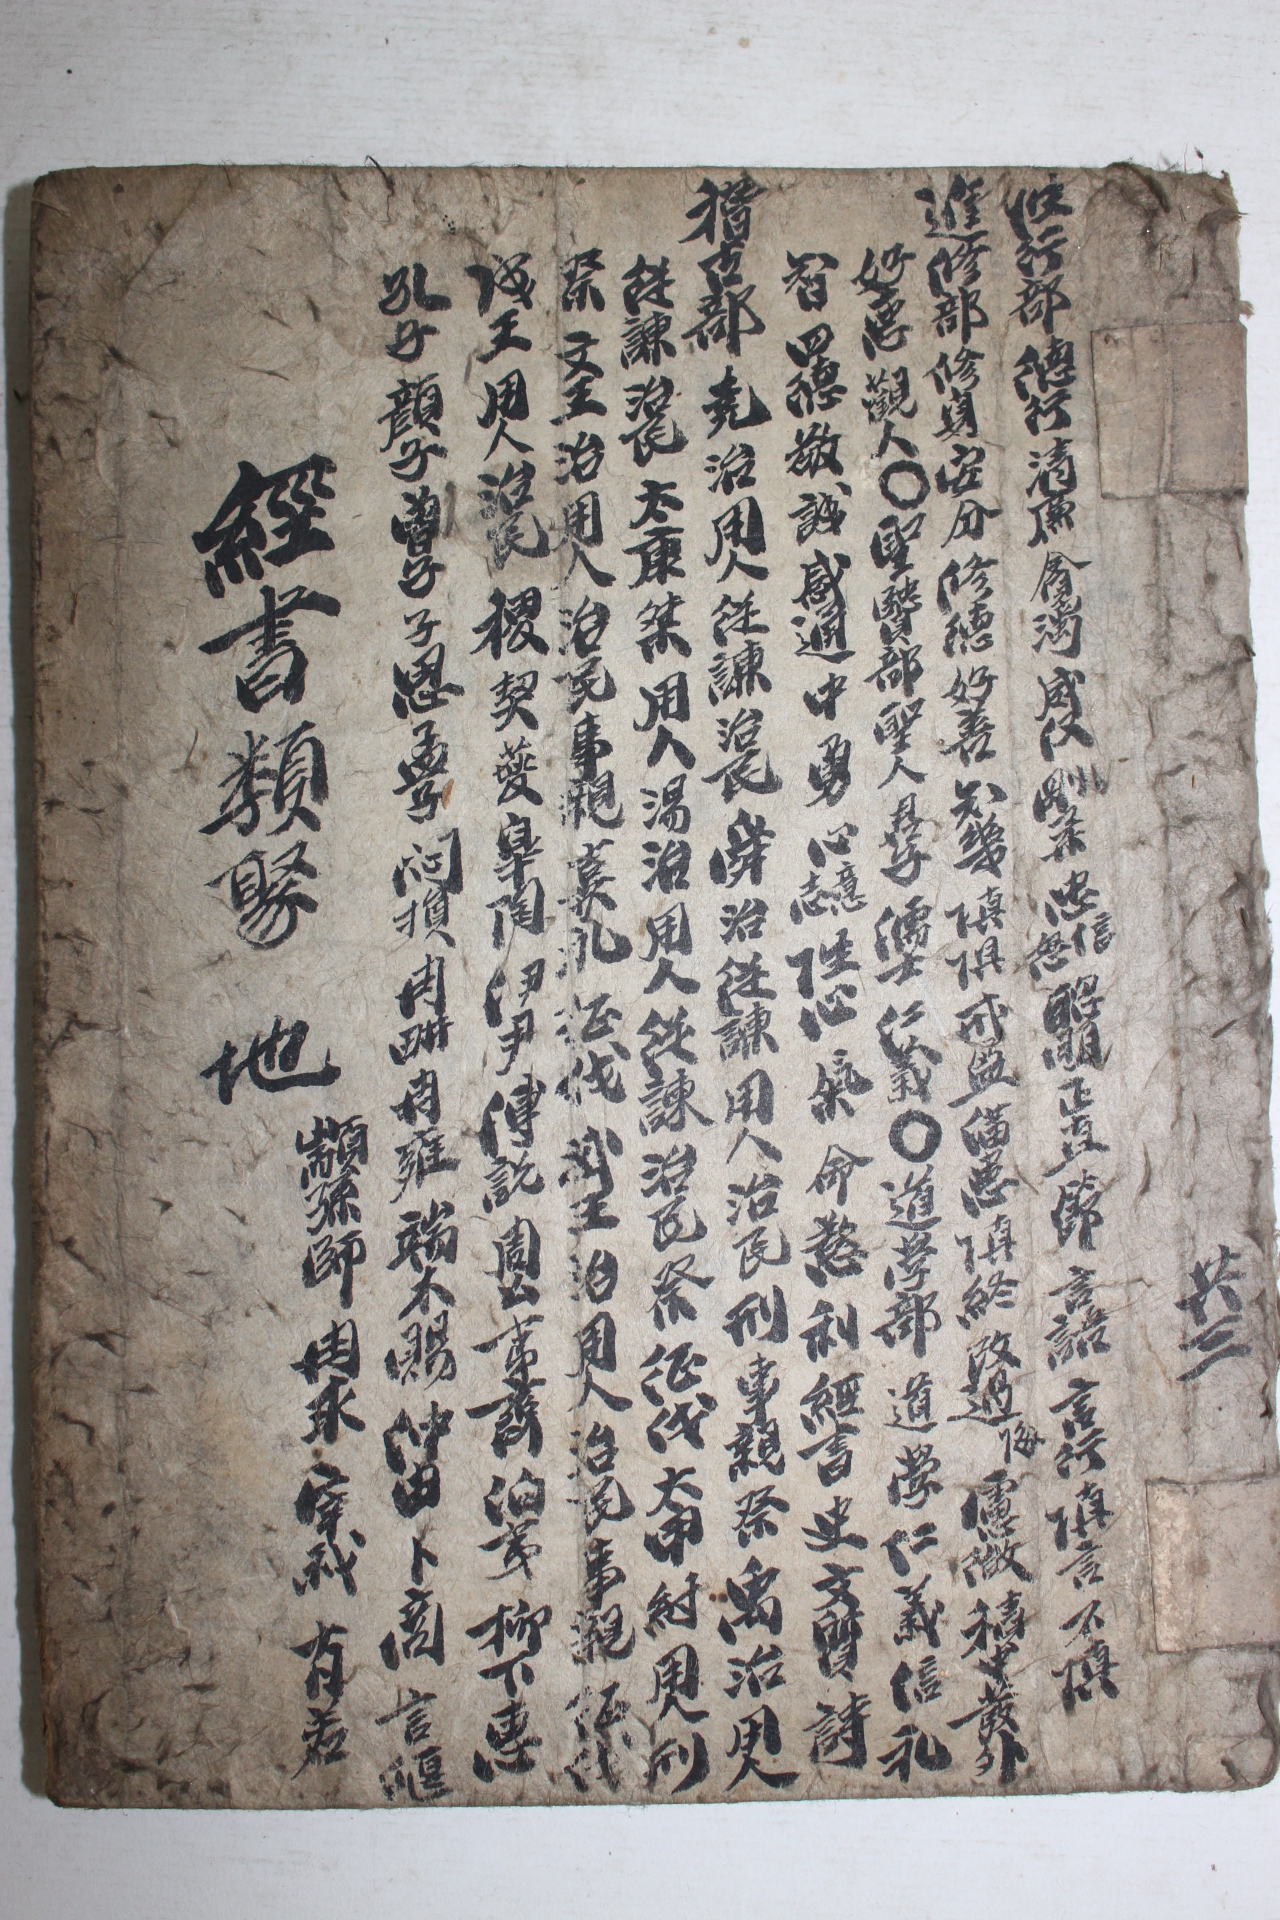 共三
行部 德行 清廉 貪濁 威仪 剛柔 忠信恕 昭明 正直 節 言語 言行 慎言 不慎
進修部 修身 安分 修德 好善 知幾 慎惧 戒盈滿 慎終 改過悔 慮微 積中發外
好惡 觀人 〇聖賢部 聖人 君子 儒士 仁義 〇道学部 道學 仁義信礼
智 四德 敬 誠 感通 中 勇 心志意 性心 氣 命 慾 利 經書 史 文質 詩
稽古部 堯 治 用人 從諫 治民 舜 治 從諫 用人 治民 刑 事親 祭 禹 治 用人
從諫 治民 太康 桀 用人 湯 治 用人 從諫 治民 祭 征伐 太甲 紂 用人 刑
祭 文王 治 用人 治民 事親 喪礼 征伐 武王 治 用人 治民 事親 征伐
成王 用人 治民 稷 契 夔 皐陶 伊尹 傅說 周公 夷齊 伯夷 柳下惠
孔子 顔子 曾子 子思 孟子 閔損 冉耕 冉雍 端木賜 仲由 卜商 言偃
顓孫師 冉求 宰我 有若
經書類聚 地